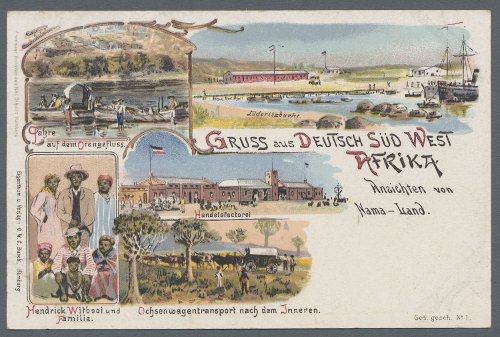 Lüderitzbucht
Fähre
auf dem Orangefluss.
GRUSS aus DEUTSCH SÜD WEST
AFRIKA
Ansichten von
Nama-Land.
Handelsfactorei
Hendrick Witbooi und
Familie.
Ochsenwagentransport nach dem Inneren.
Ges. gesch. № 1.